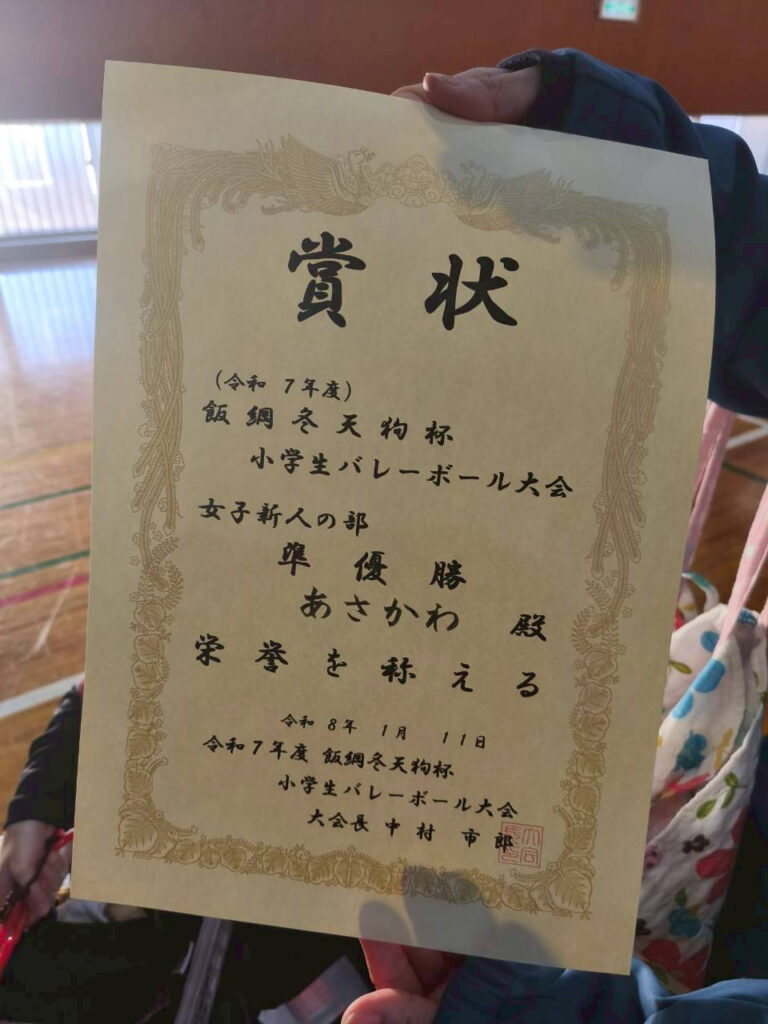 賞状
（令和 7年度）
飯綱冬天狗杯
小学生バレーボール大会
女子新人の部
準優勝
あさかわ 殿
栄誉を称える
令和 8年 1月 11日
令和7年度 飯綱冬天狗杯
小学生バレーボール大会
大会長 中村 市郎